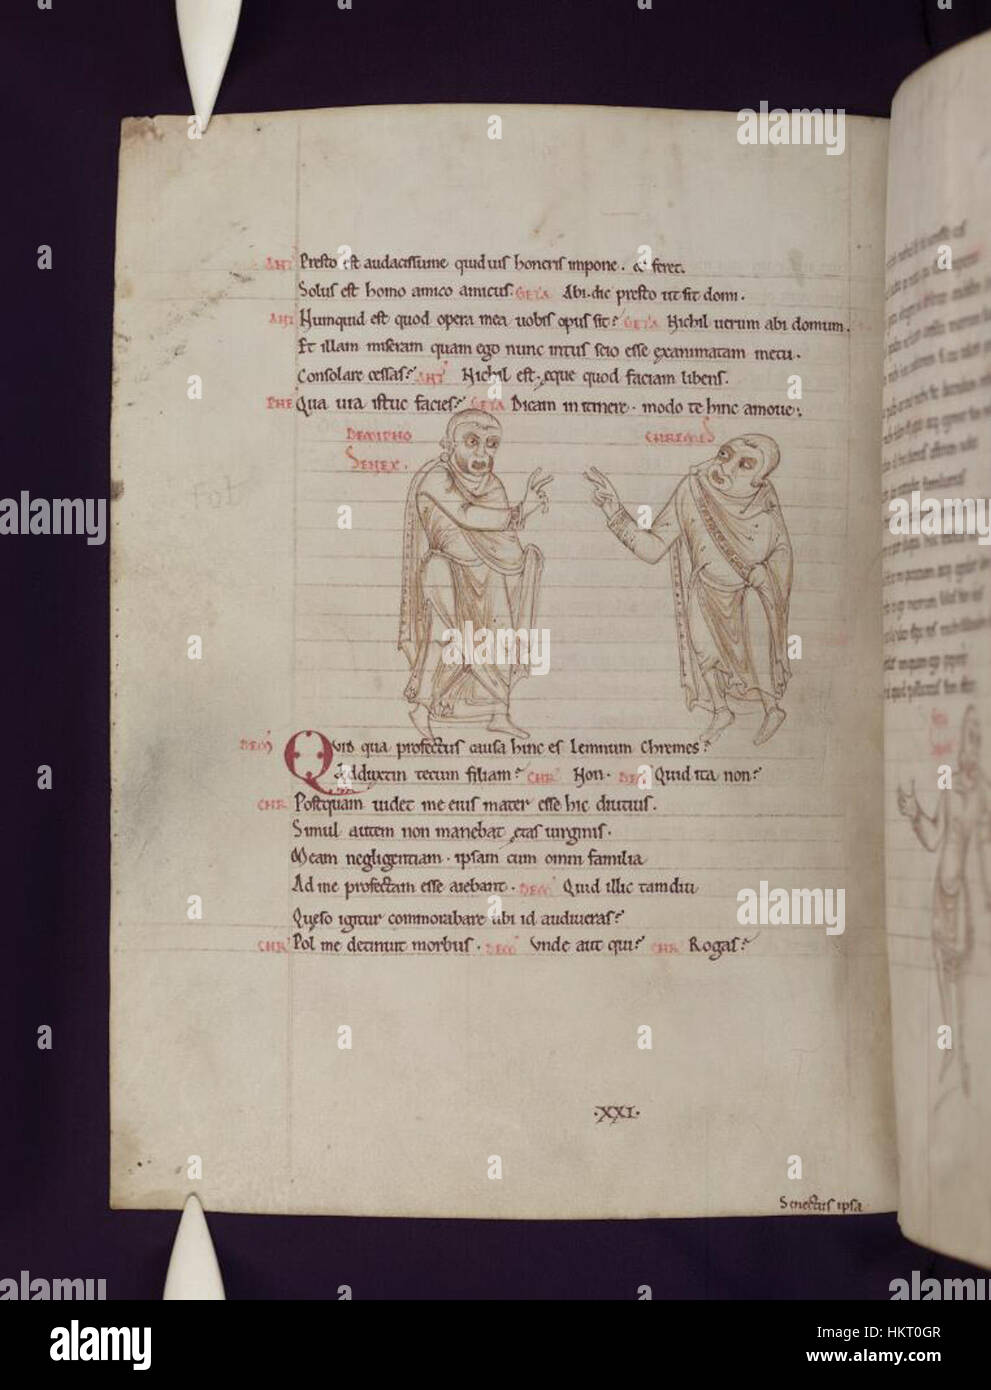 ANT Presto est audacissime quiduis honeris impone. & feret.
Solus est homo amico amicus. GETA Abi. dic presto ut sit domi.
ANT Numquid est quod opera mea uobis opus sit? GETA Nichil uerum abi domum.
Et illam miseram quam ego nunc intus scio esse exanimatam metu.
Consolare cessas? ANT Nichil est. eque quod faciam libens.
PHE Qua uia istuc facies? GETA Dicam in itinere. modo te hinc amoue.
DEMIPHO CHREMES
SENEX.
DEM Quid qua profectus causa hinc es Lemnum Chremes?
Adduxtin tecum filiam? CHR Non. DEM Quid ita non?
CHR Postquam uidet me eius mater esse hic diutius.
Simul autem non manebat etas uirginis.
Meam negligentiam. ipsam cum omni familia
Ad me profectam esse aiebant. DEM Quid illic tam diu
Queso igitur commorabare ubi id audiueras?
CHR Pol me detinuit morbus. DEM Unde aut qui? CHR Rogas?
.XXI.
Senectus ipsa
alamy
Image ID: HKT0GR
www.alamy.com